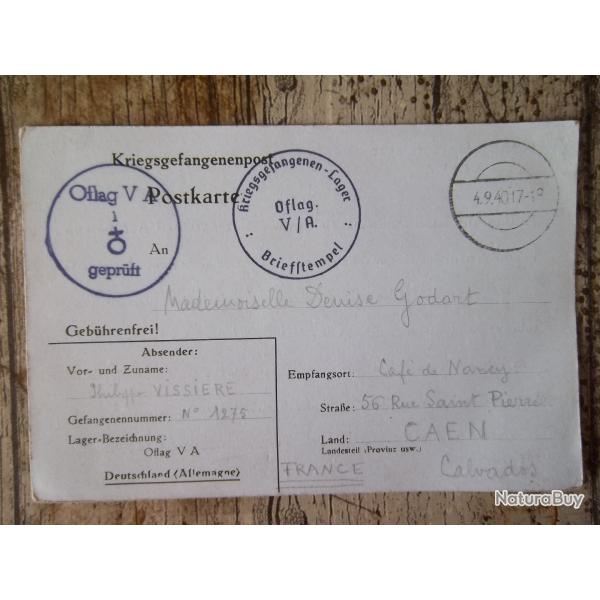 Kriegsgefangenenpost
Postkarte
Oflag V A
1
geprüft
Kriegsgefangenen-Lager
Oflag.
V/A.
Briefstempel
4.9.40 17-
An
Mademoiselle Denise Godart
Gebührenfrei!
Absender:
Vor- und Zuname:
Philippe VISSIERE
Gefangenennummer: N° 1275
Lager-Bezeichnung:
Oflag V A
Deutschland (Allemagne)
Empfangsort: Café de Nancy
Straße: 56 Rue Saint Pierre
Land: CAEN
Landesteil (Provinz usw.)
FRANCE Calvados
NaturaBuy